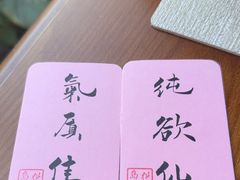 氣质佳
纯欲仙